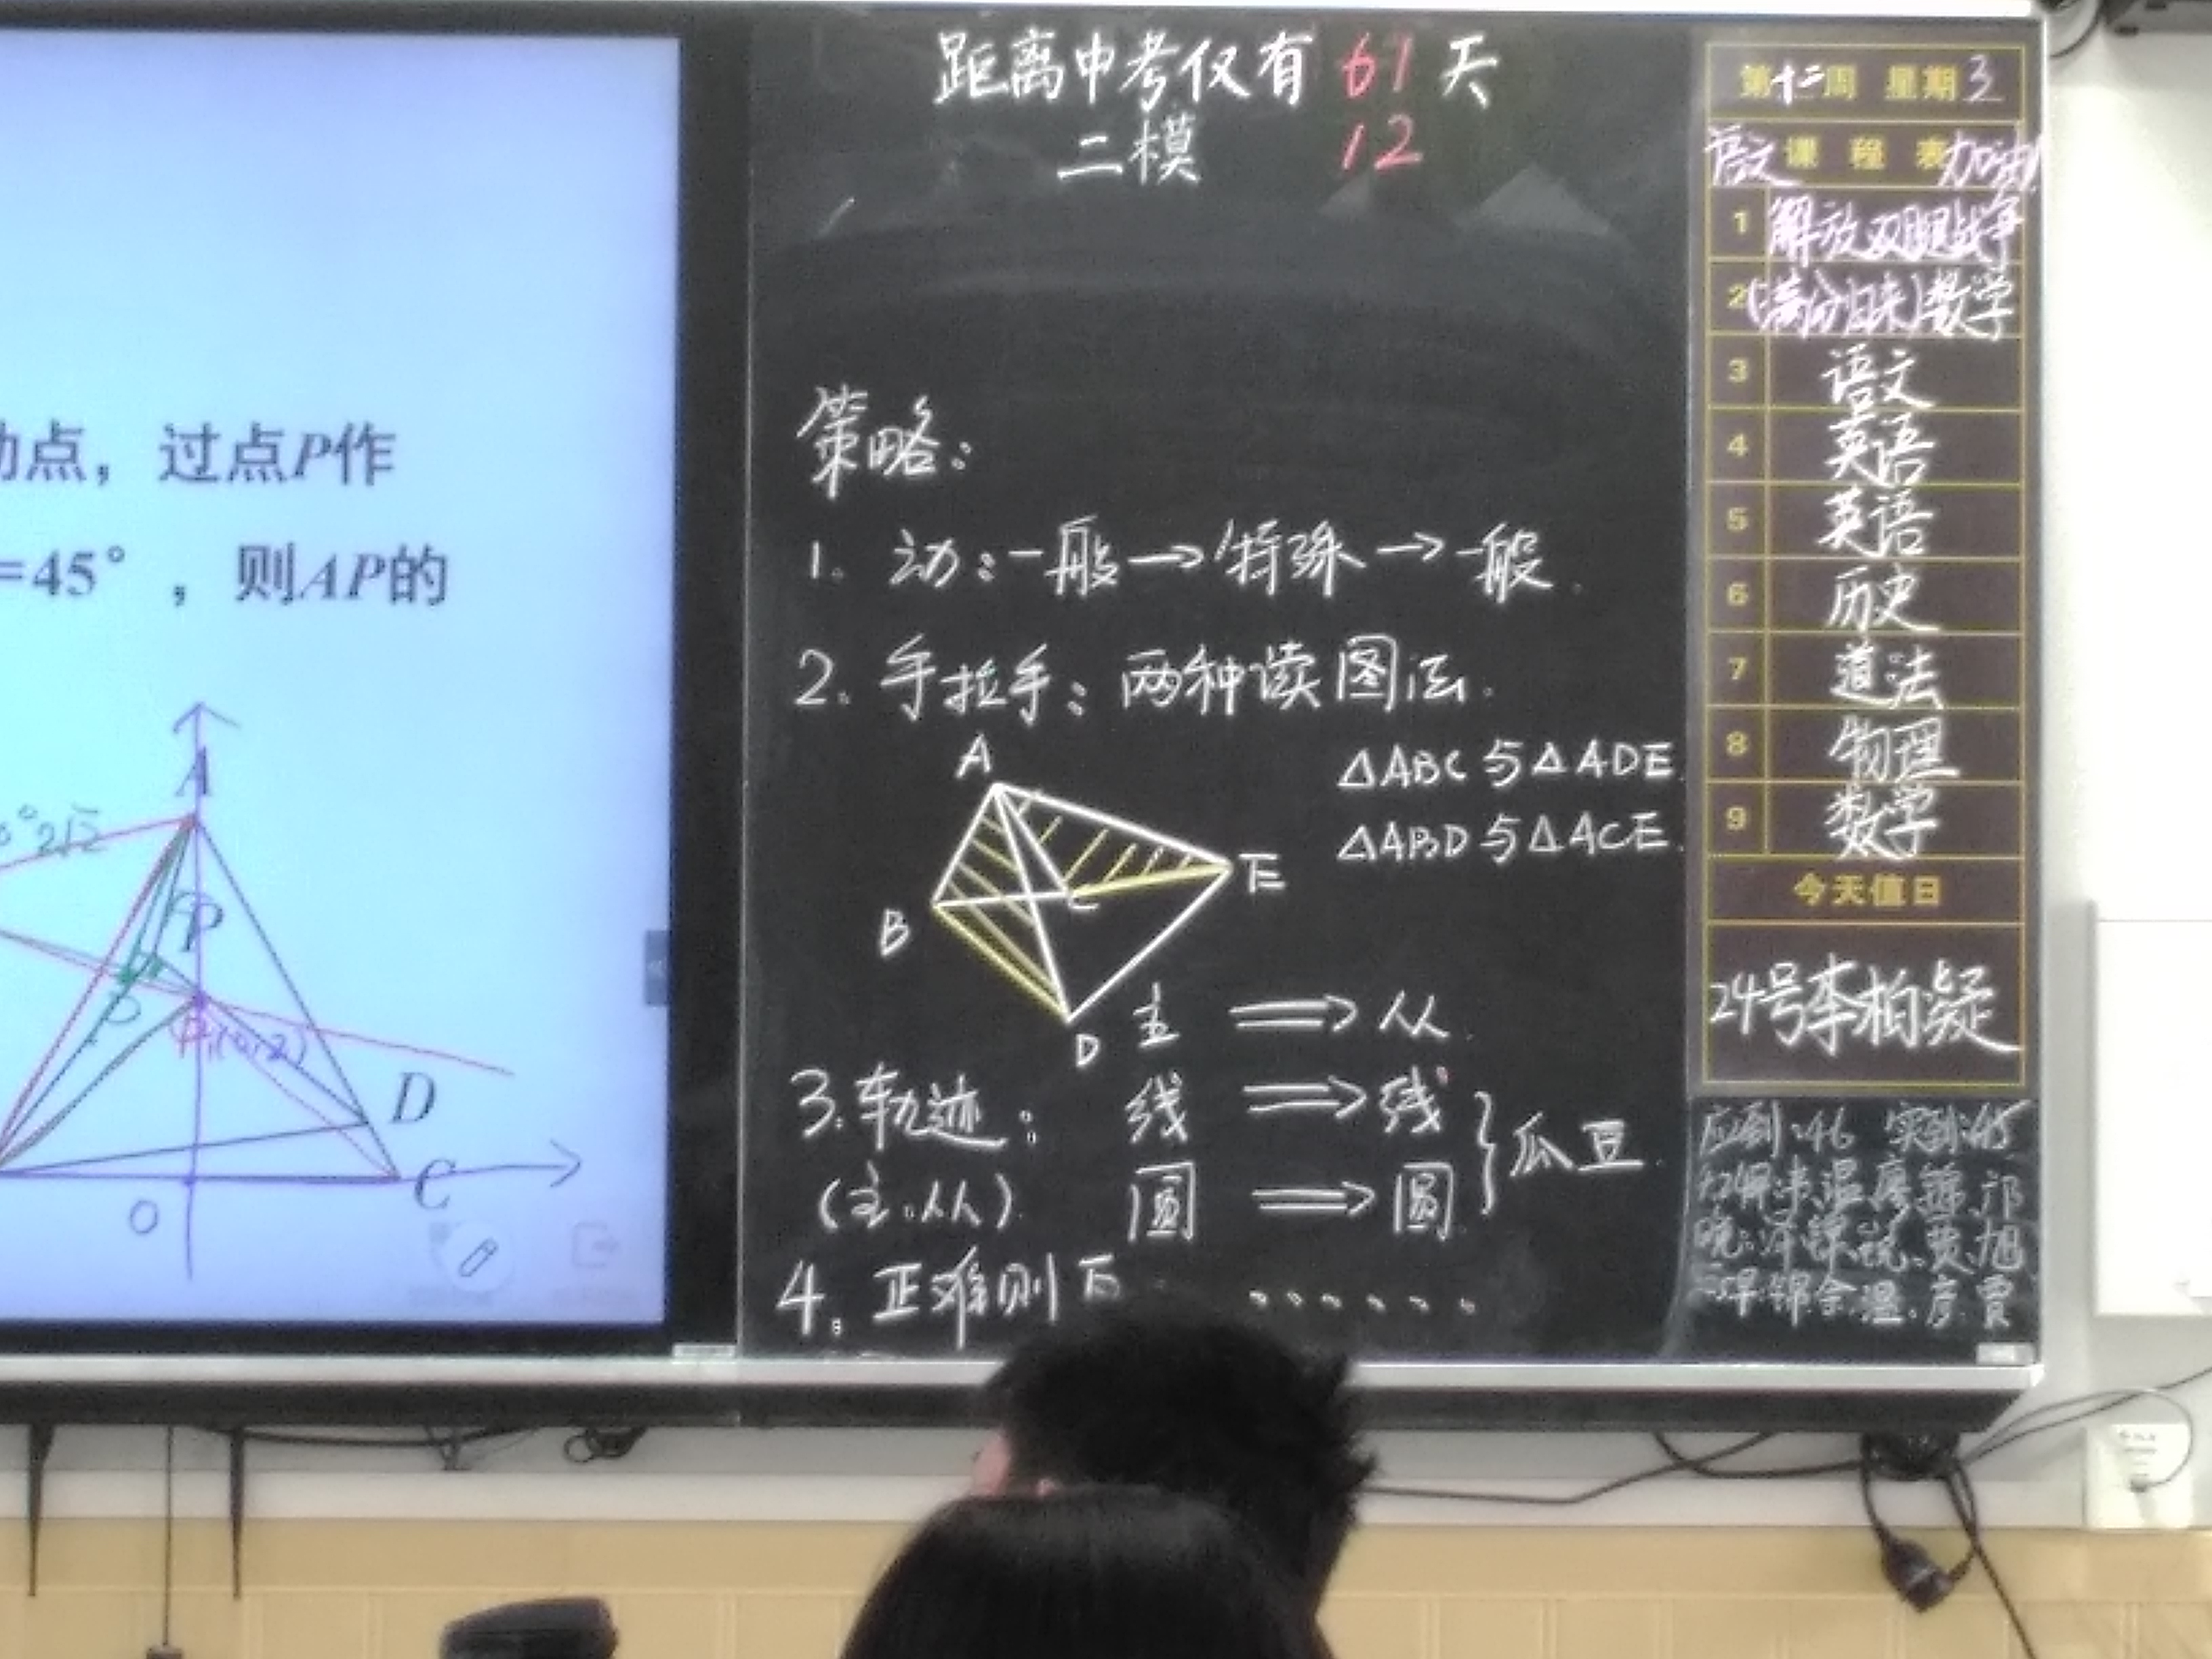 动点，过点P作
=45°，则AP的
2√2
A
P
D
C
O
距离中考仅有 61 天
二模 12
策略：
1. 动：一般→特殊→一般.
2. 手拉手：两种读图法.
A
B
C
D
E
△ABC与△ADE.
△ABD与△ACE.
主 ⟹ 从
3. 轨迹： 线 ⟹ 线
(主.从) 圆 ⟹ 圆
瓜豆
4. 正难则反 ......
第十二周 星期3
语文 课程表 加油!
1 解放双腿战争
2 (满分归来)数学
3 语文
4 英语
5 英语
6 历史
7 道法
8 物理
9 数学
今天值日
24号李柏凝
应到:46 实到:45